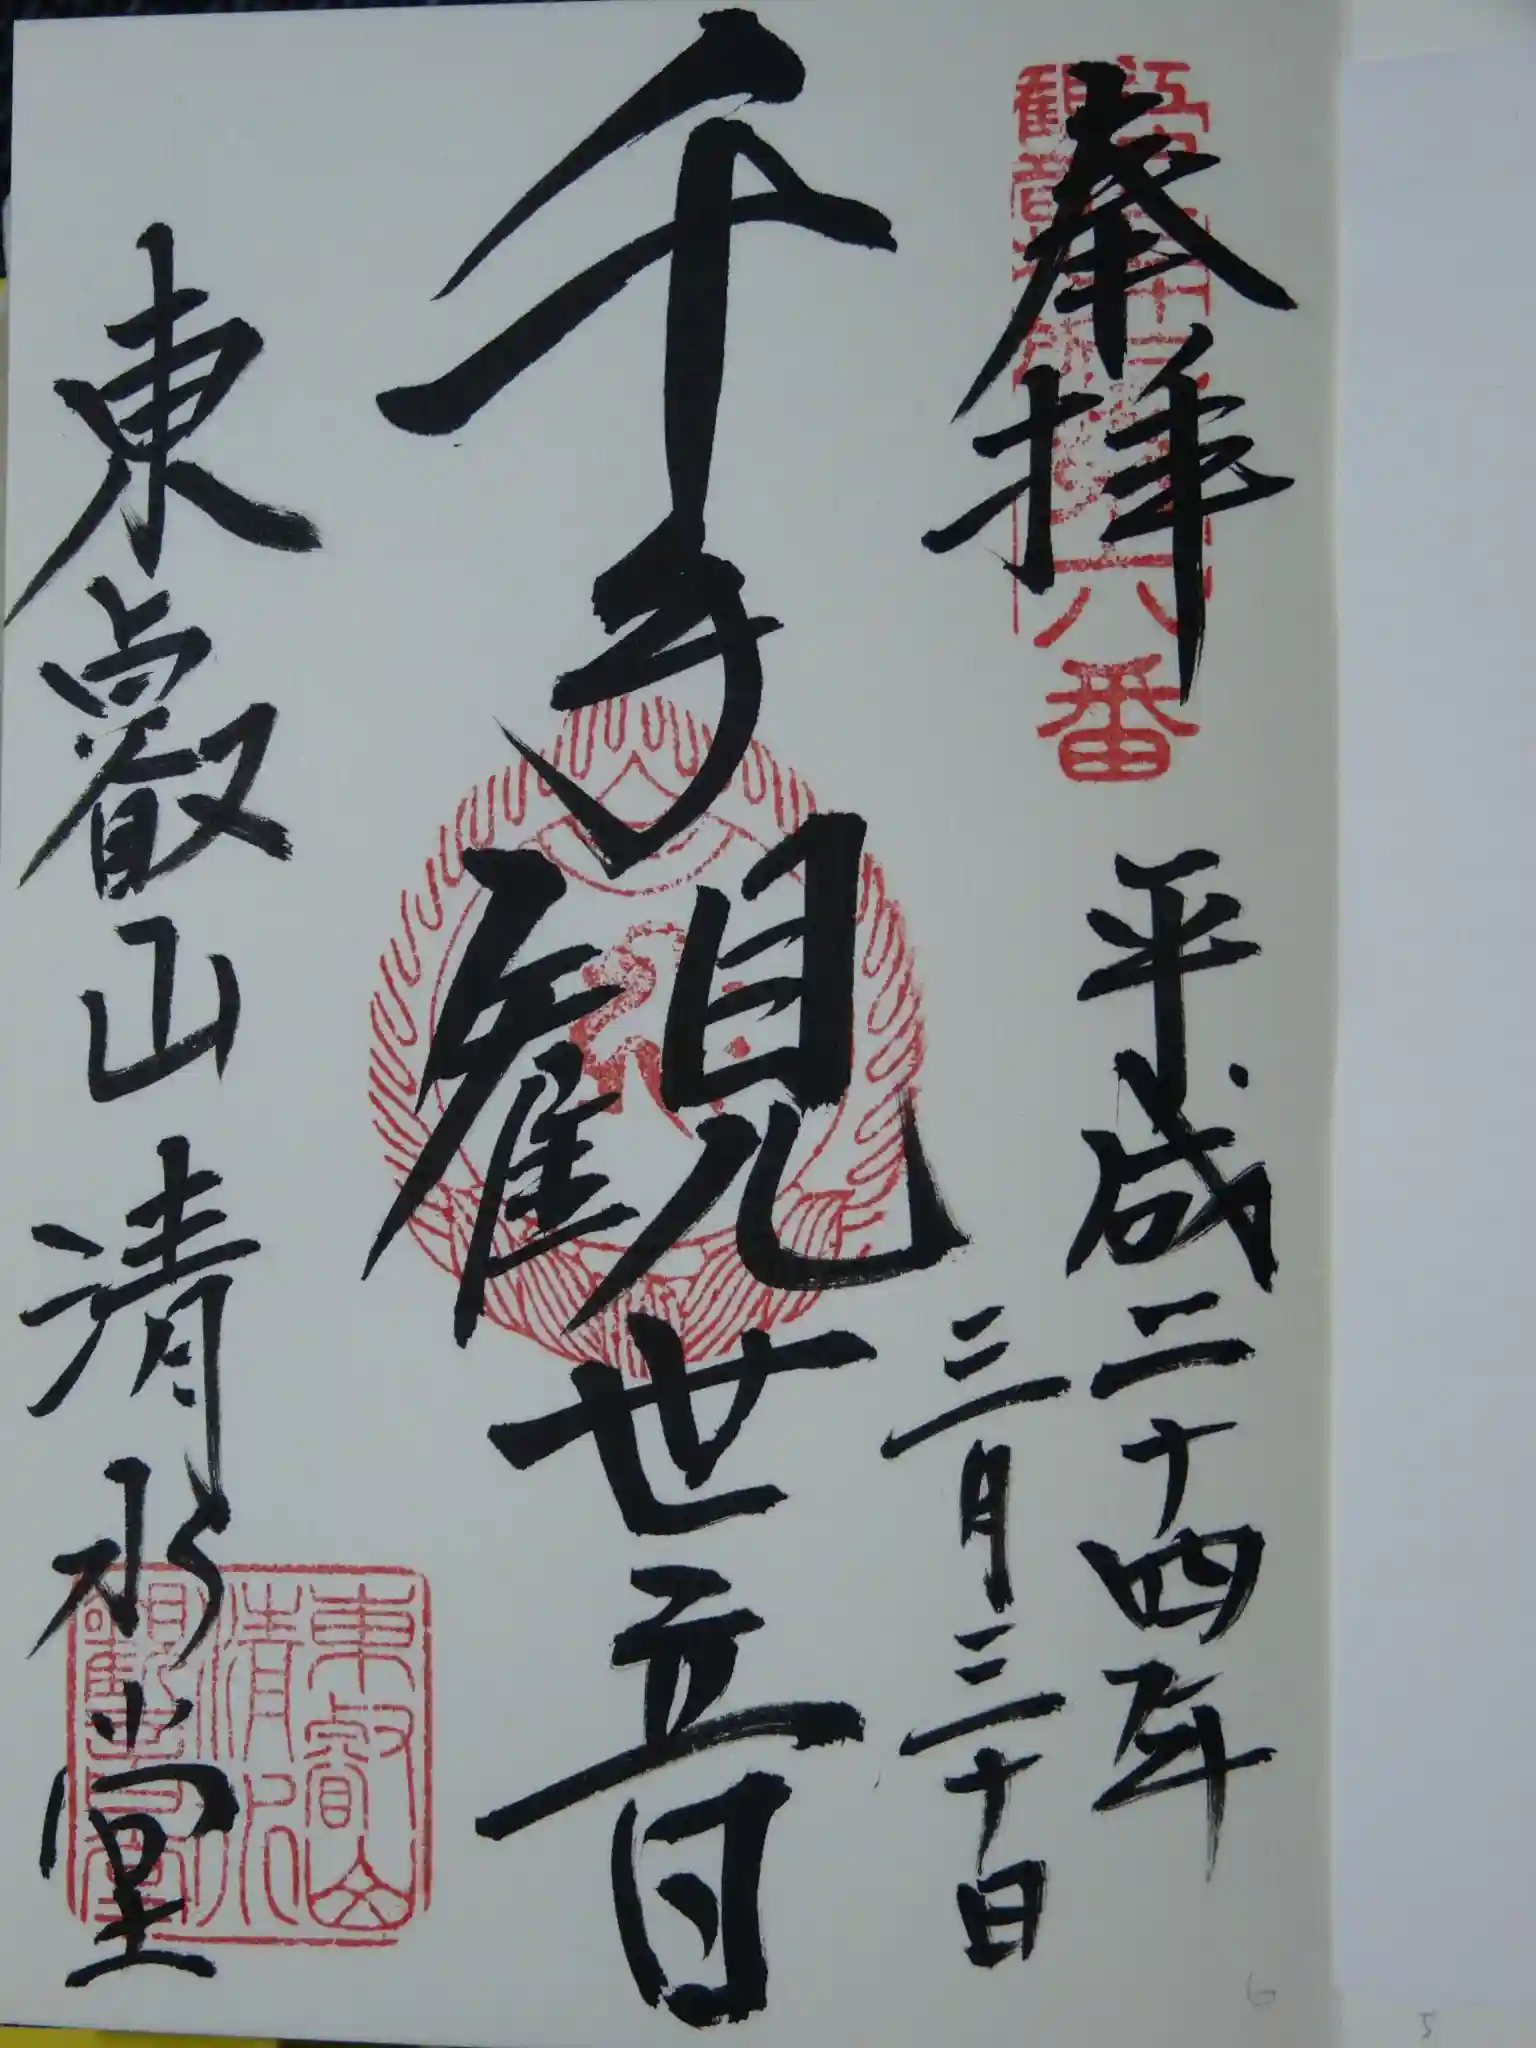 奉拝
六番
平成二十四年
三月三十日
千手觀世音
東叡山清水堂
東叡山
清水
觀音堂
6
5